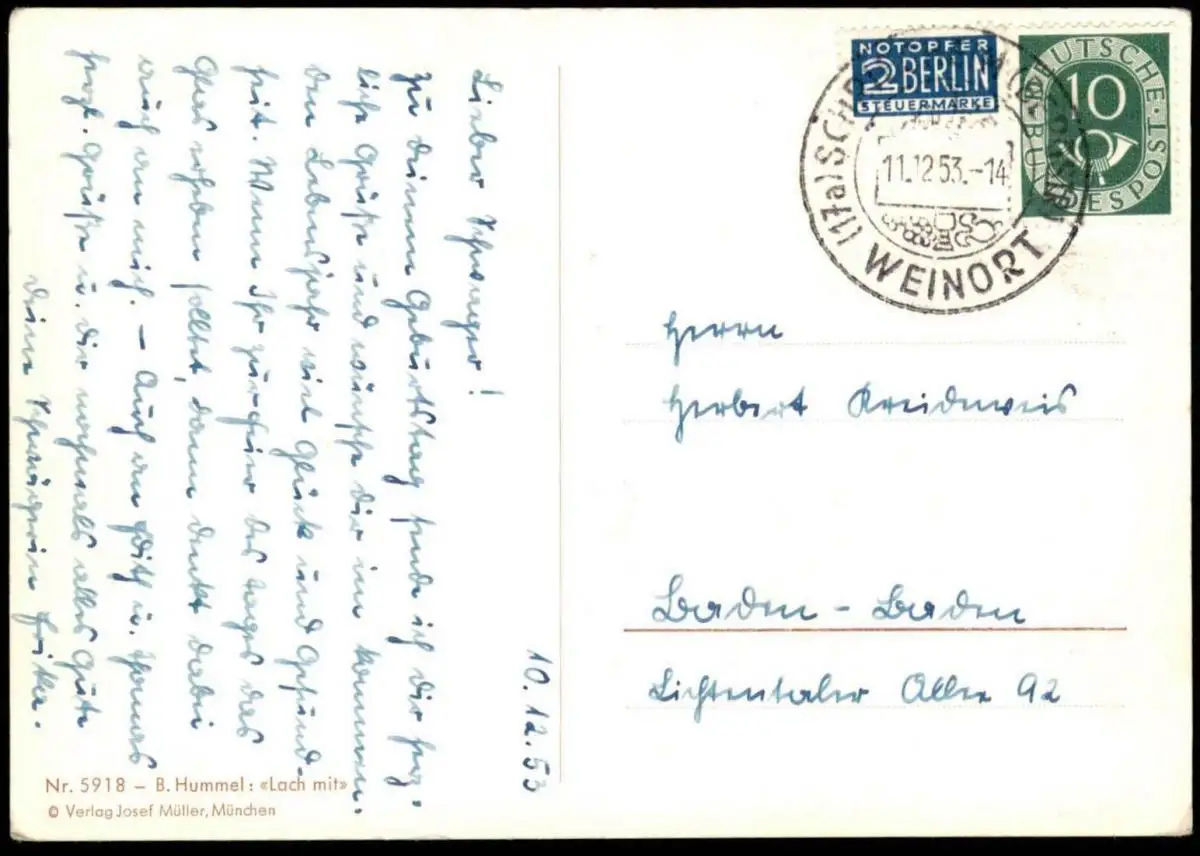 10.12.53
Lieber Schwager!
Zu deinem Geburtstag sende ich dir herz-
liche Grüße und wünsche dir im kommen-
den Lebensjahr viel Glück und Gesund-
heit. Wenn Ihr zur Feier des Tages das
Glas erheben solltet, dann denkt dabei
auch an mich. – Auch an Edith u. Hannes
herzl. Grüße u. dir nochmals alles Gute
deine Schwägerin Erika.
Nr. 5918 – B. Hummel: «Lach mit»
© Verlag Josef Müller, München
NOTOPFER
2 BERLIN
STEUERMARKE
DEUTSCHE BUNDESPOST
10
11.12.53.-14
WEINORT
Herrn
Herbert Kreidenweis
Baden-Baden
Lichtentaler Allee 92